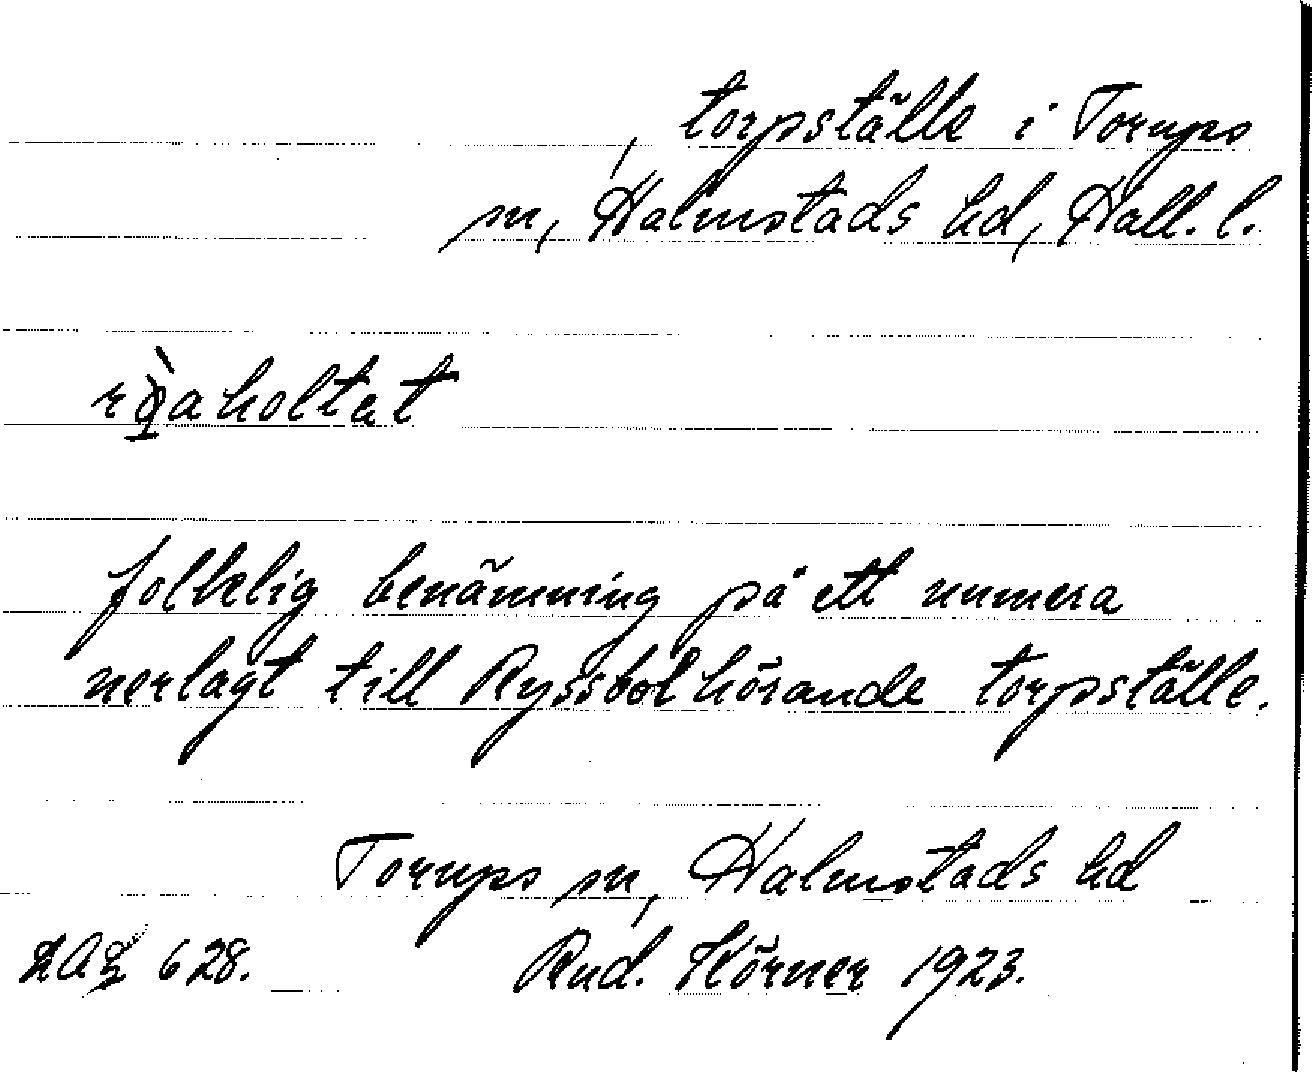 , torpställe i Torups
sn, Halmstads hd, Hall. l.
folkelig benämning på ett numera
nerlagt till Ryssbol hörande torpställe.
Torups sn, Halmstads hd
628. Rud. Körner 1923.